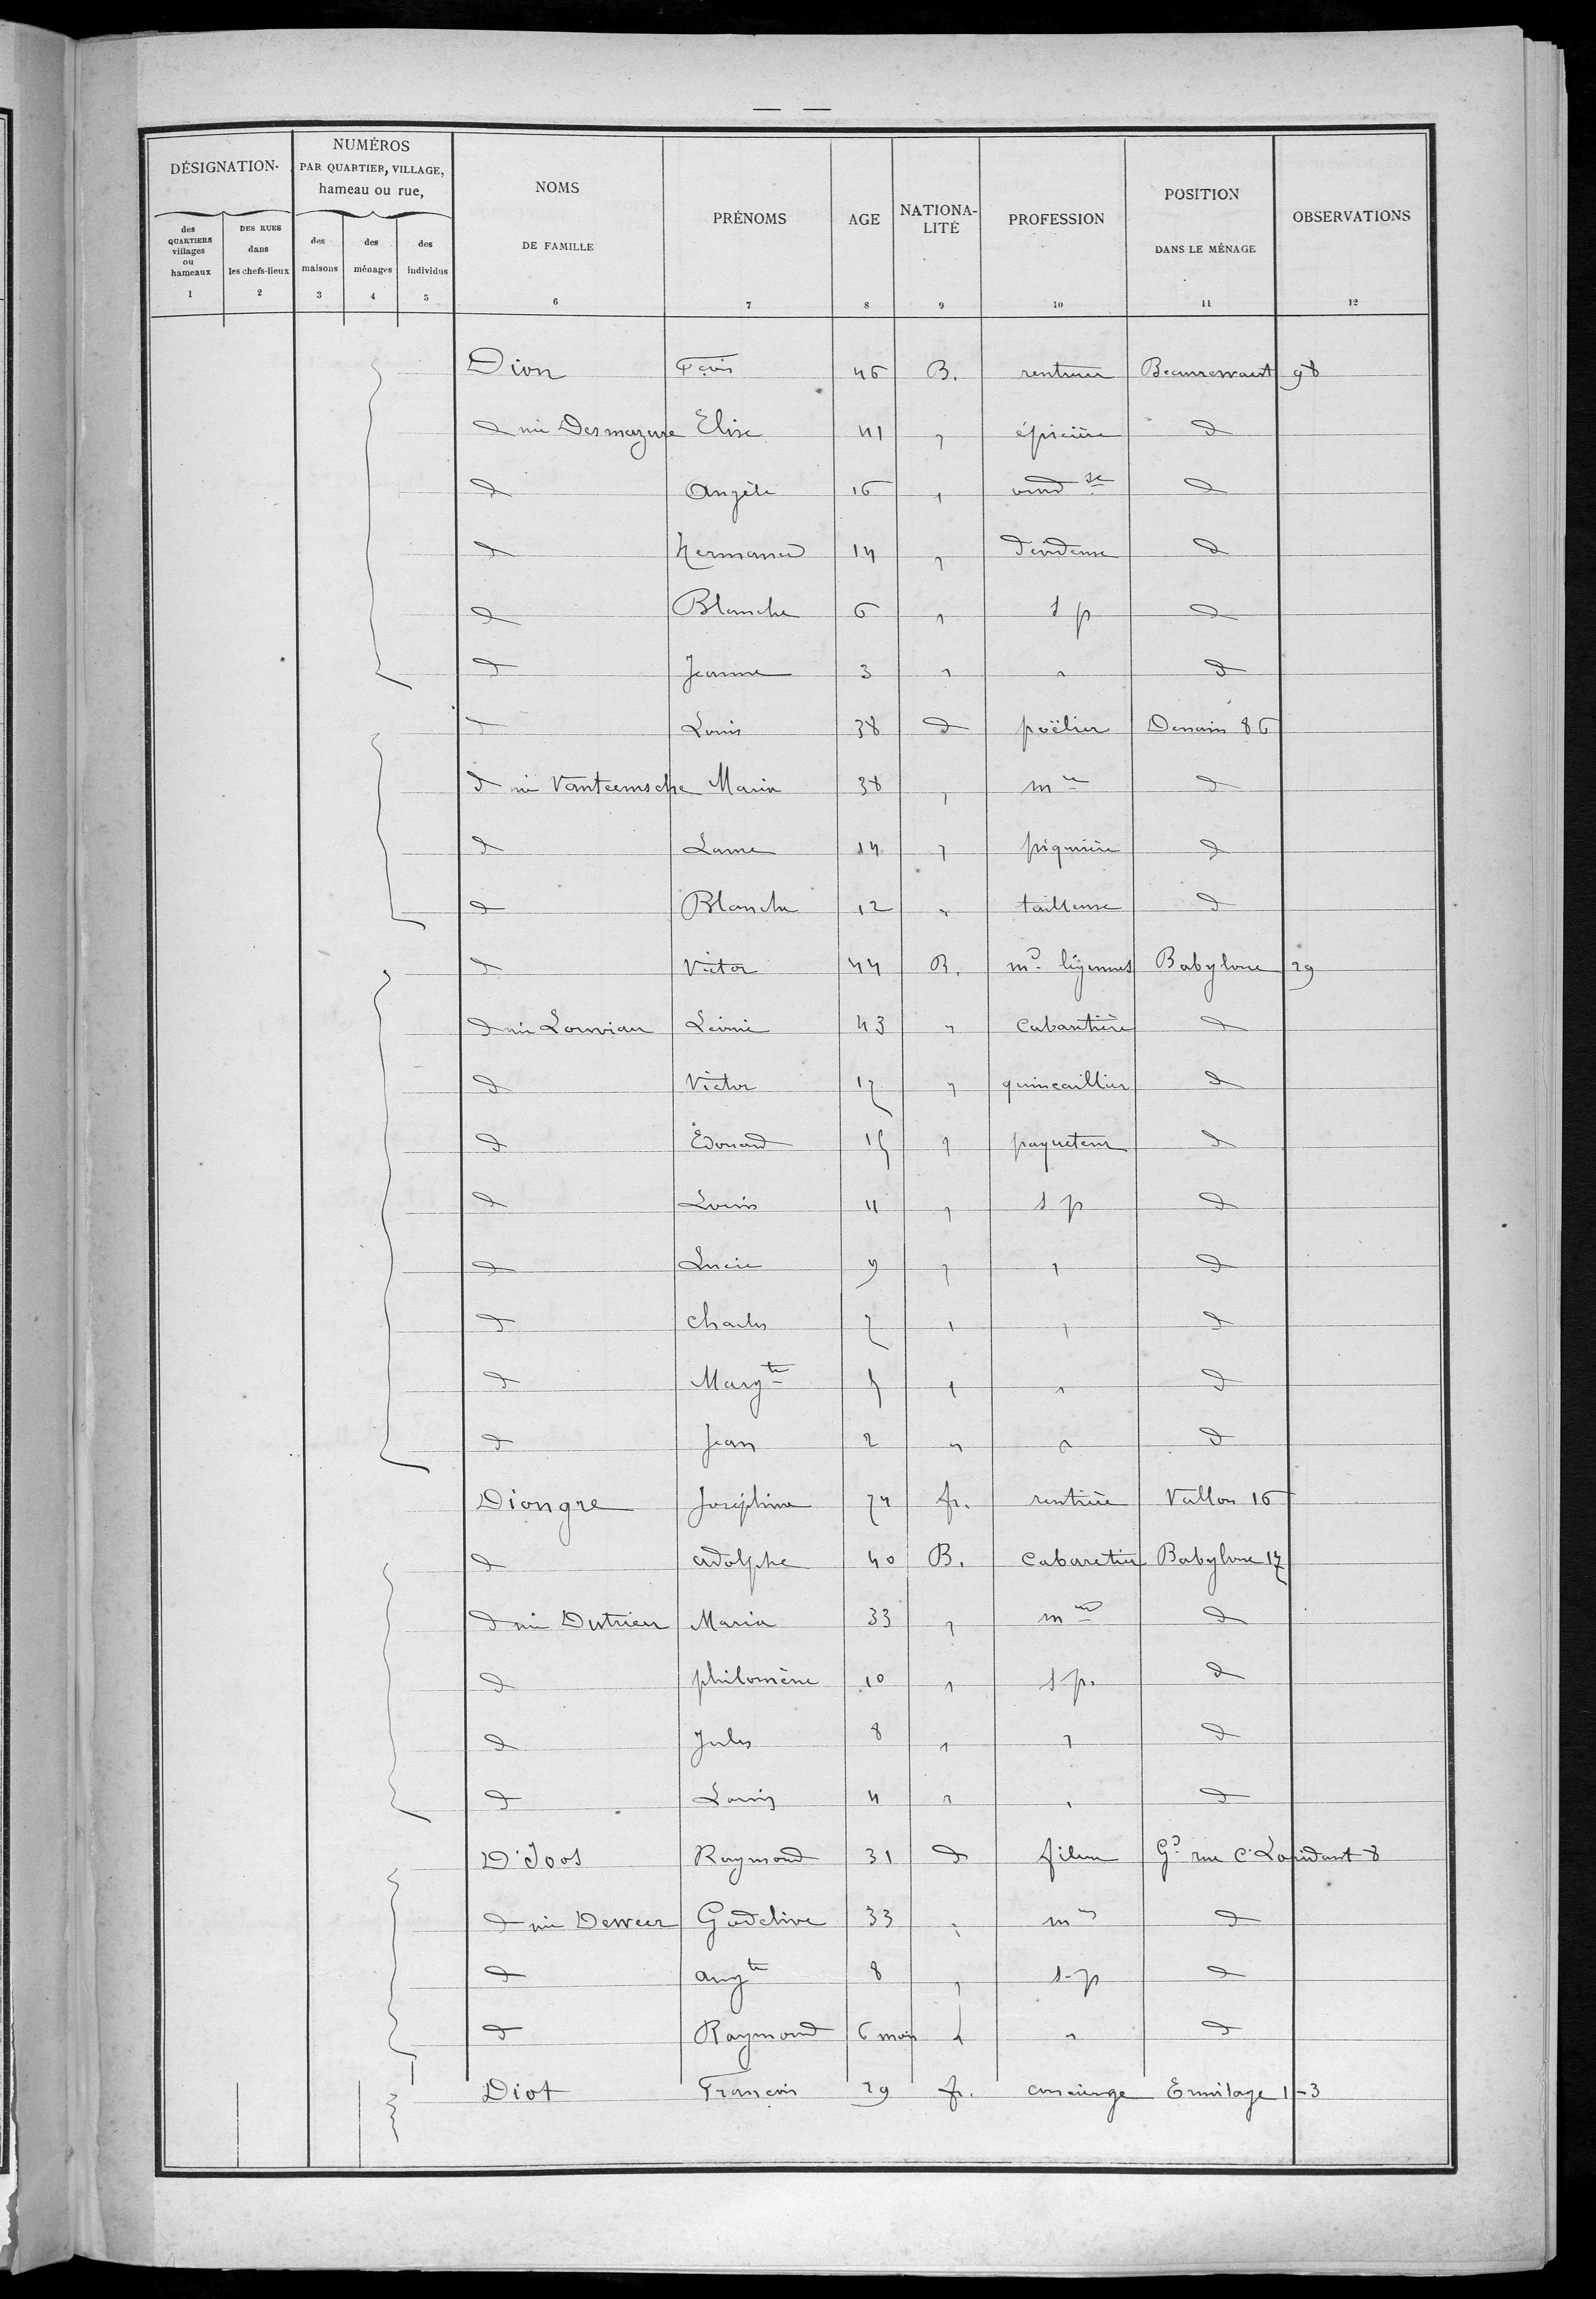 — —
DÉSIGNATION
NUMÉROS
PAR QUARTIER, VILLAGE,
hameau ou rue,
des QUARTIERS villages ou hameaux
DES RUES dans les chefs-lieux
des maisons
des ménages
des individus
NOMS
DE FAMILLE
PRÉNOMS
AGE
NATIONA-
LITÉ
PROFESSION
POSITION
DANS LE MÉNAGE
OBSERVATIONS
1 2 3 4 5 6 7 8 9 10 11 12
Dion Fçois 46 B. rentreur Beaurewaert 98
d née Desmazure Elise 41 " épicière d
d Angèle 16 " vend se d
d Hermance 14 " dévideuse d
d Blanche 6 " s p d
d Jeanne 3 " " d
d Louis 38 d poëlier Denain 86
d née Vanteemsche Maria 38 " mre d
d Laure 14 " piqurière d
d Blanche 12 " tailleuse d
d Victor 44 B. md légumes Babylone 29
d née Louviau Léonie 43 " Cabaretière d
d Victor 17 " quincaillier d
d Édouard 15 " paqueteur d
d Louis 11 " s p d
d Lucie 9 " " d
d Charles 7 " " d
d Margte 5 " " d
d Jean 2 " " d
Diongre Joséphine 74 fr. rentière Vallon 16
d adolphe 40 B. Cabaretier Babylone 17
d née Dutrieu Maria 33 " m d
d philomène 10 " s p. d
d Jules 8 " " d
d Louis 4 " " d
D'Joos Raymond 31 d fileur Gd rue C. 8
d née Deweer Godelive 33 " m d
d augte 8 " s-p d
d Raymond 6 mois " " d
Diot François 29 fr. concierge Ermitage 1-3